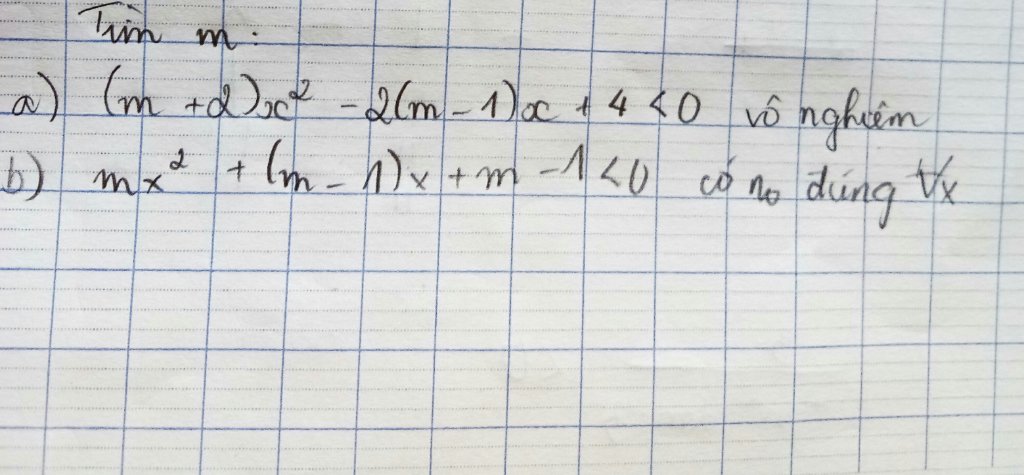 Tìm m:
a) (m + 2)x² - 2(m - 1)x + 4 < 0 vô nghiệm
b) mx² + (m - 1)x + m - 1 < 0 có no đúng ∀x